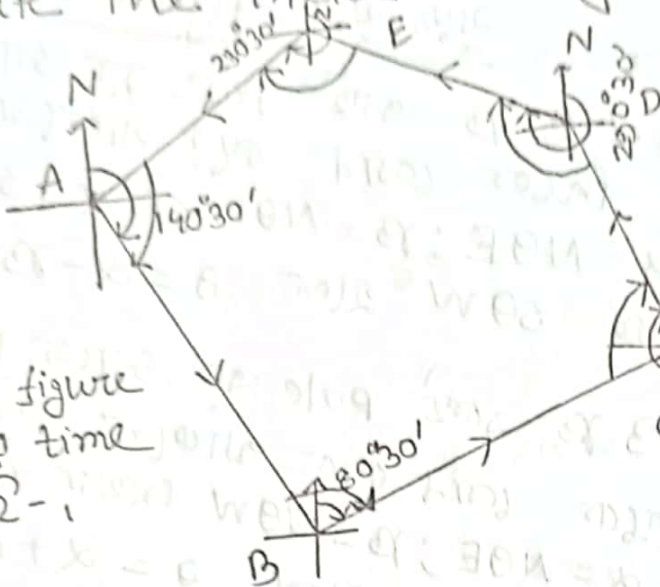 N
E
N
230°30'
290°30'
D
N
A
140°30'
figure
time
80°30'
B